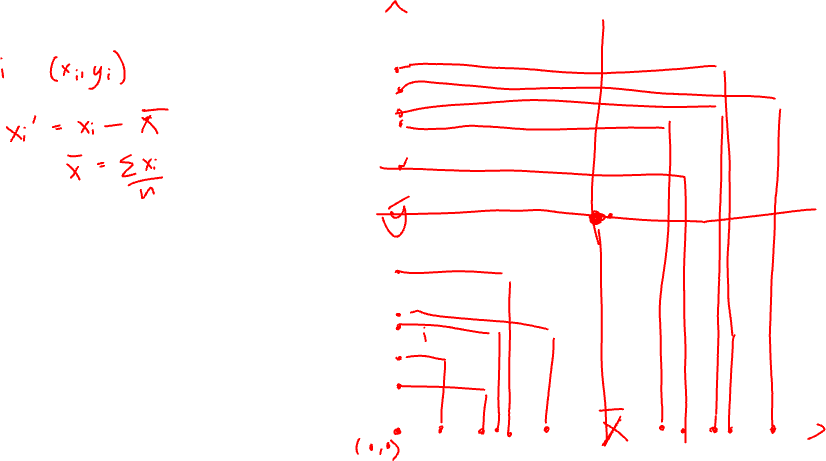 i (xi, yi)
xi' = xi - x̄
x̄ = Σxi/n
ȳ
i
x̄
(0,0)